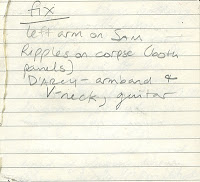 fix
left arm on SAM
Ripples on corpse (both
panels)
D'ARCY - armband &
V-neck, guitar